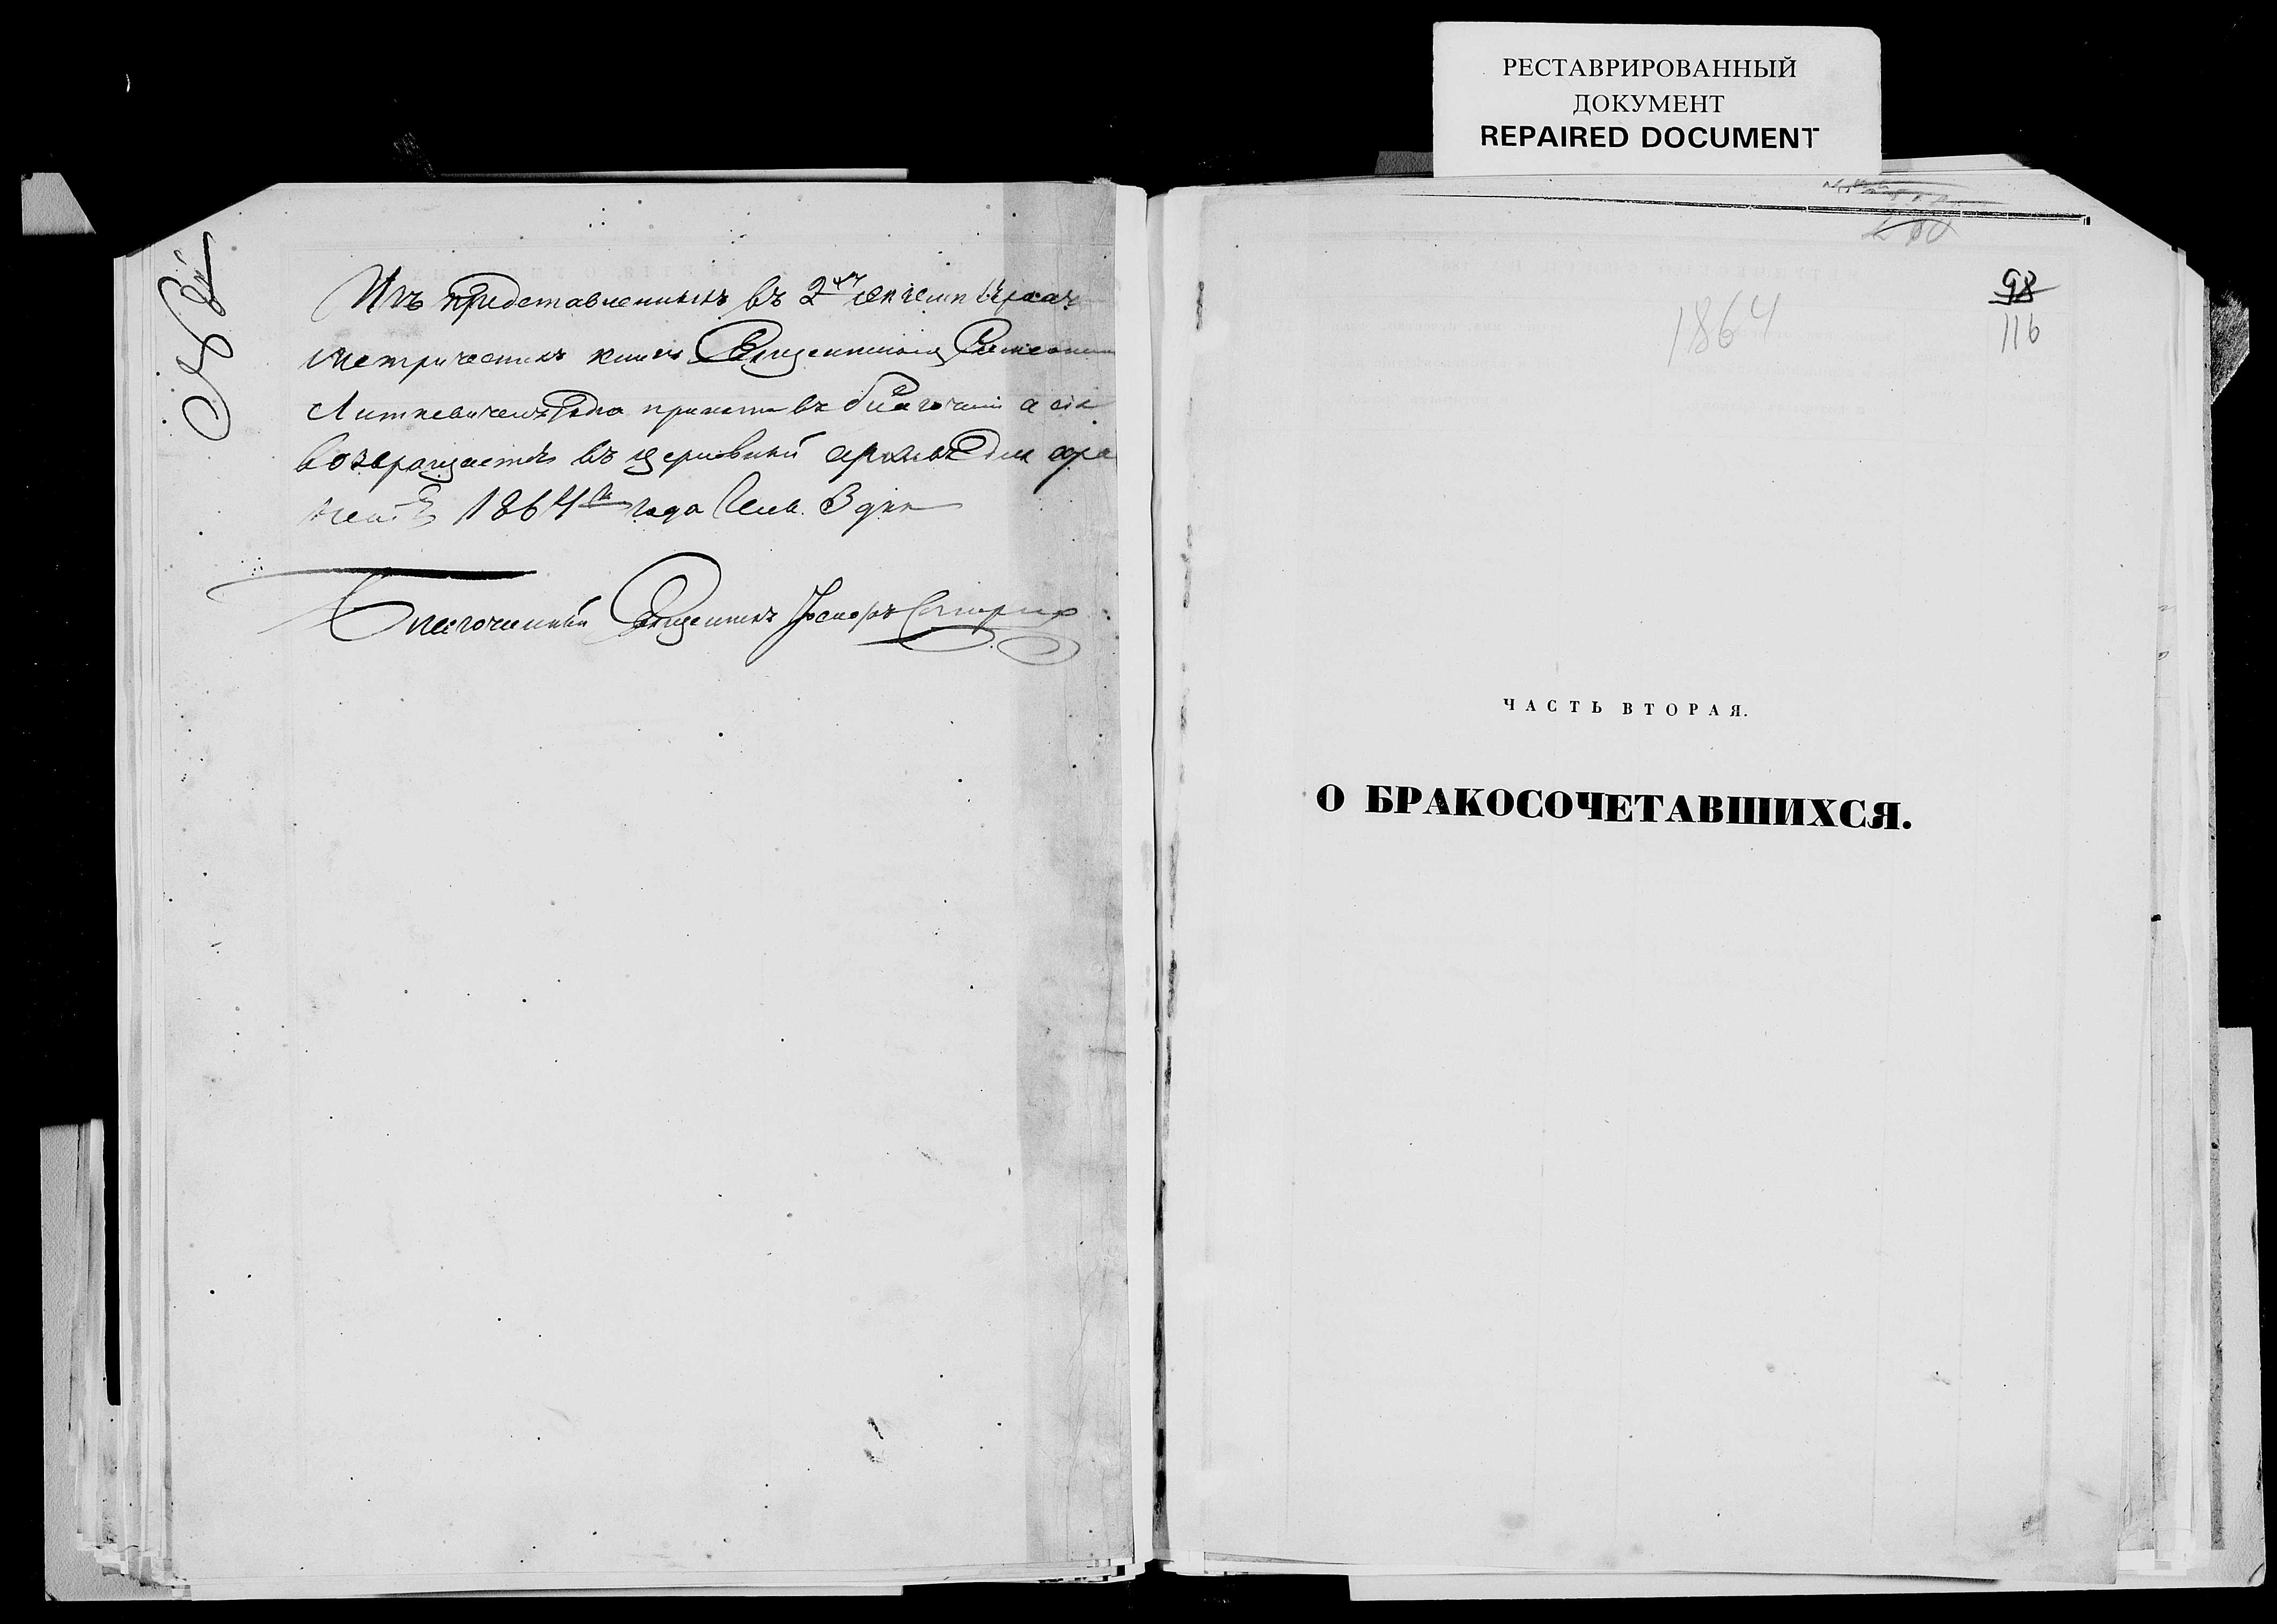 РЕСТАВРИРОВАННЫЙ
ДОКУМЕНТ
REPAIRED DOCUMENT
Изъ представленныхъ въ 2хъ
метрическихъ книгъ Священникомъ
Литкевичемъ одна принята въ благочиніи а сія
возвращается въ церковный архивъ для хра
неній 1864 года Генв. 3 дня
Благочинный Священникъ Іосифъ
1864
98
116
ЧАСТЬ ВТОРАЯ.
О БРАКОСОЧЕТАВШИХСЯ.